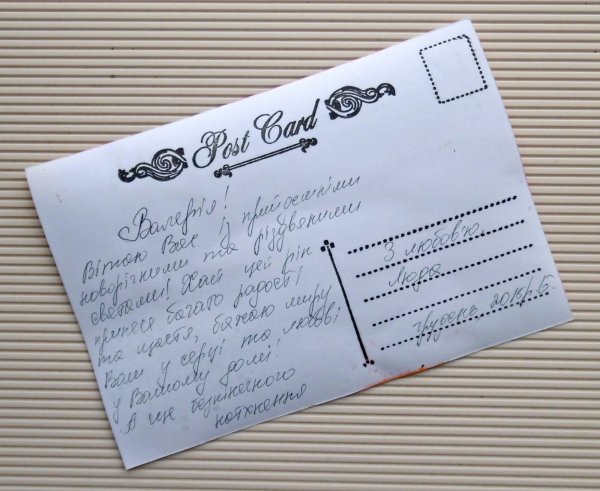 Post Card
Валерія!
Вітаю Вас із прийдешніми
новорічними та різдвяними
святами! Хай цей рік
принесе багато радості
та щастя, бажаю миру
Вам у серці та любові
у Вашому домі!
А ще безкінечного
натхнення
З любов'ю,
Люда
грудень, 2015р.